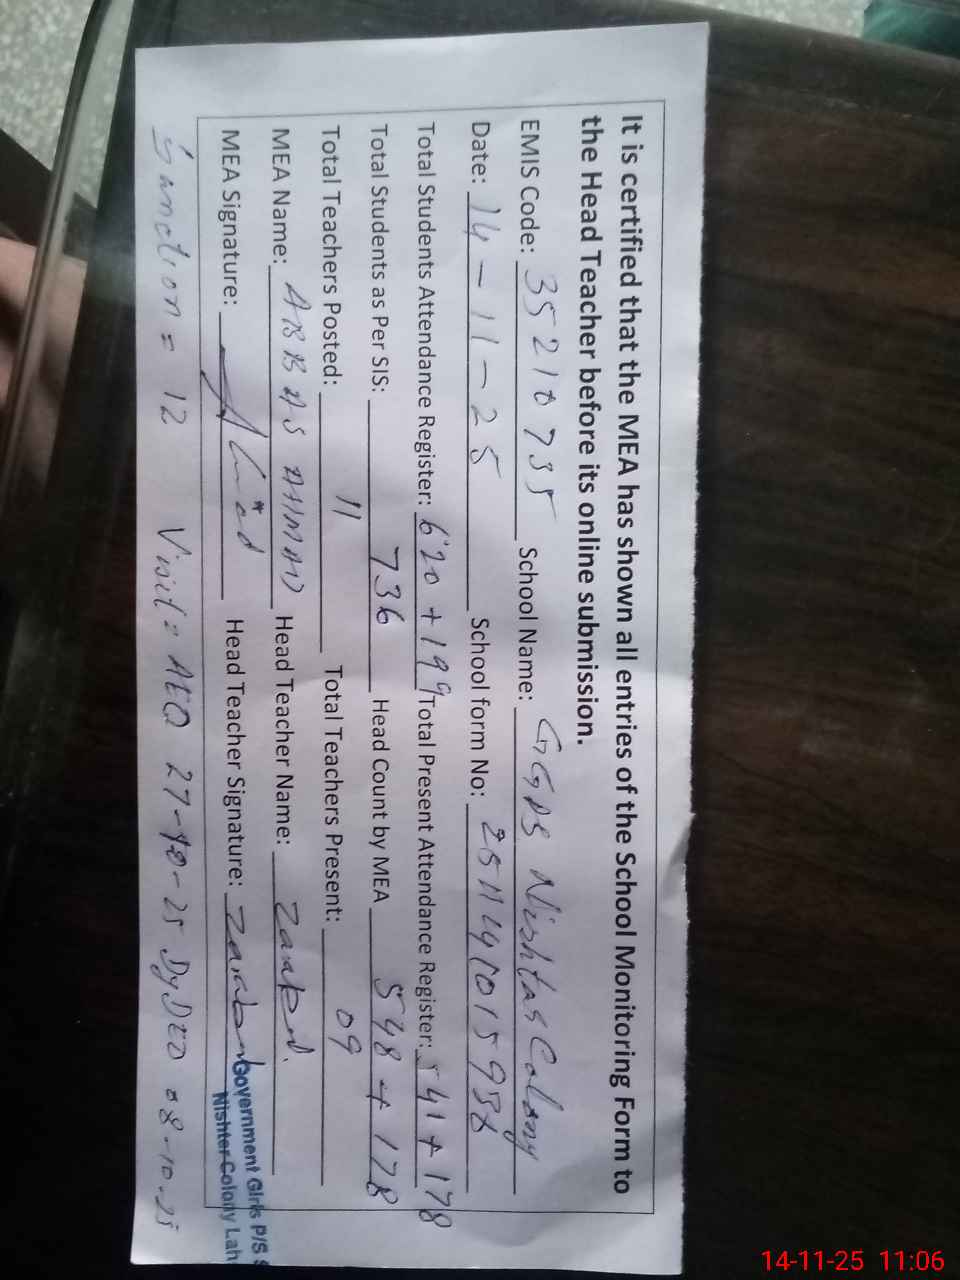 It is certified that the MEA has shown all entries of the School Monitoring Form to
the Head Teacher before its online submission.
EMIS Code: 35210735 School Name: GGPS Nishtar Colony
Date: 14-11-25 School form No:
Total Students Attendance Register: 620 + 199 Total Present Attendance Register: 541 + 178
Total Students as Per SIS: 736 Head Count by MEA 548 + 178
Total Teachers Posted: 11 Total Teachers Present: 09
MEA Name: ABBAS AHMAD Head Teacher Name:
MEA Signature: Head Teacher Signature:
Government Girls P/S
Nishter Colony Lah
Sanction = 12 Visit: AEO 27-10-25 DyDEO 08-10-25
14-11-25 11:06